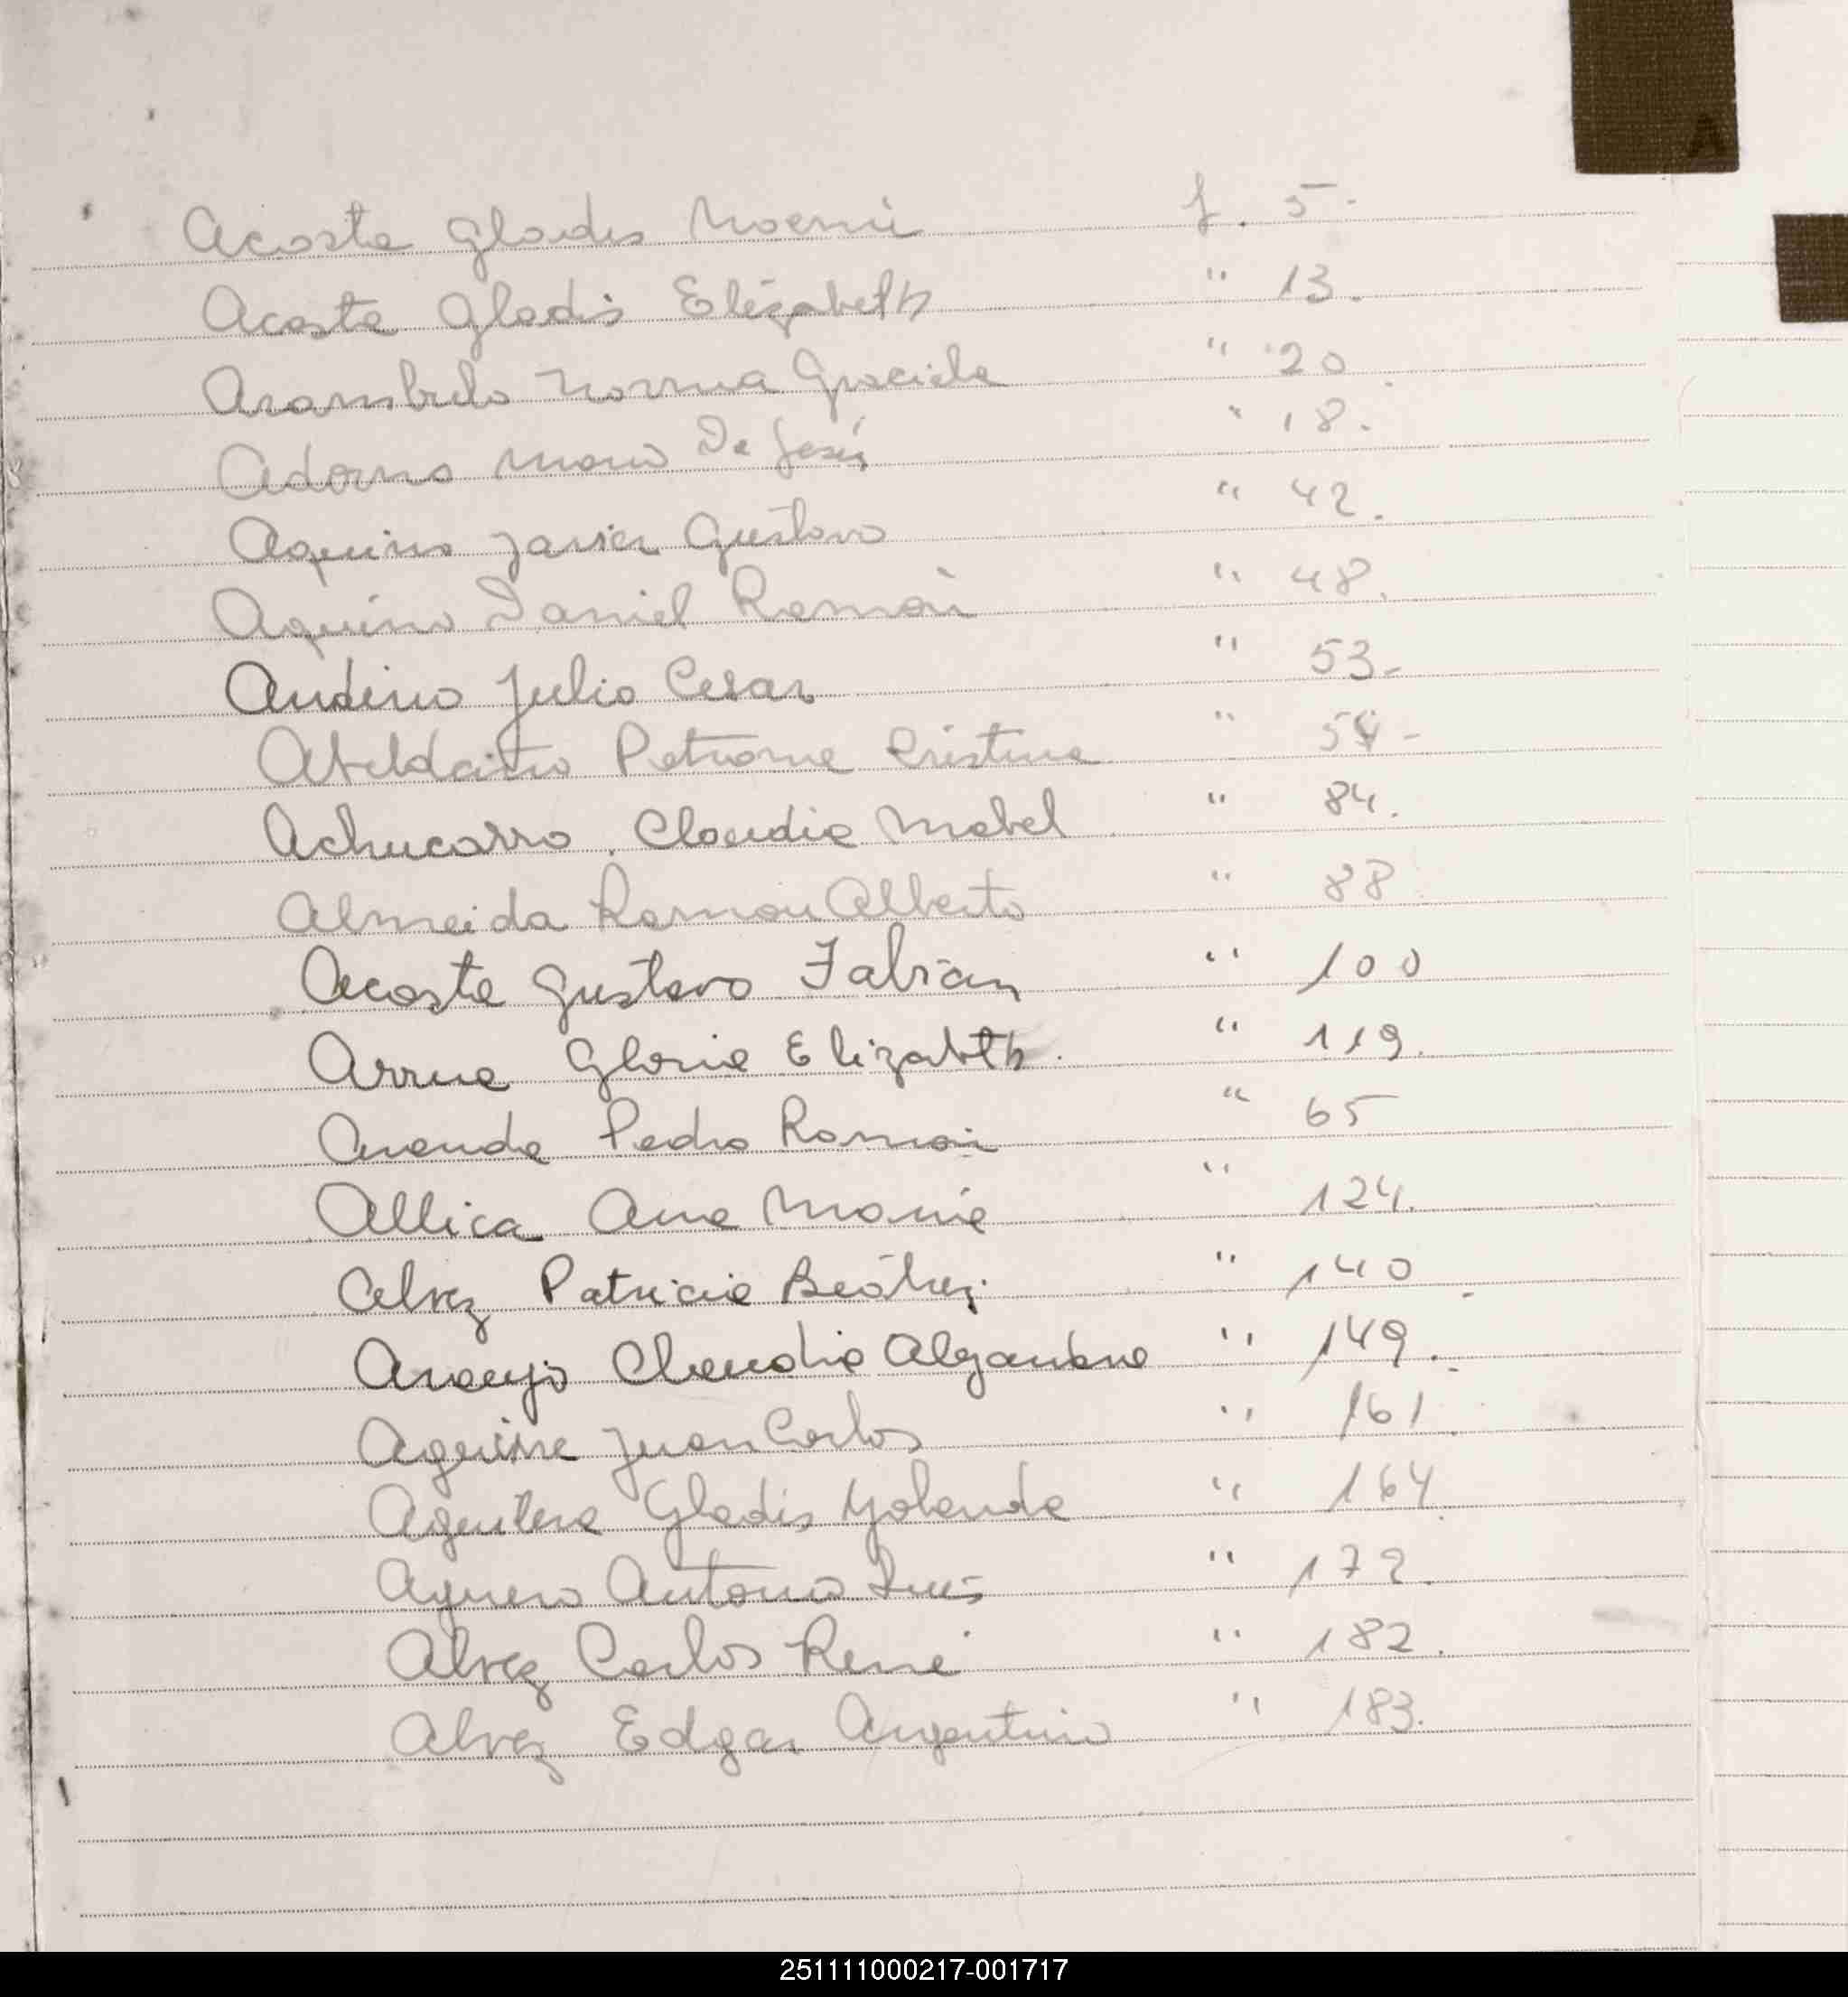 A
Acosta Gladis Noemi f. 5-
Acosta Gladis Elizabeth " 13.
Arambulo Norma Graciela " 20.
Adorno Maria De Jesús " 18.
Aquino Javier Gustavo " 42.
Aquino Daniel Ramón " 48.
Andino Julio Cesar " 53-
Petrona Cristina "
Achucarro. Claudia Mabel " 84.
Almeida Ramon Alberto " 88
Acosta Gustavo Fabian " 100
Arrua Gloria Elizabeth. " 119.
Pedro Ramon " 65
Allica Ana Maria " 124.
Alvez Patricia Beatriz. " 140.
Araujo Claudia Alejandra " 149.
Aguirre Juan Carlos " 161.
Aguilera Gladis Yolanda " 164.
Aguero Antonio Luis " 172.
Alvez Carlos René " 182.
Alvez Edgar Argentino " 183.
251111000217-001717